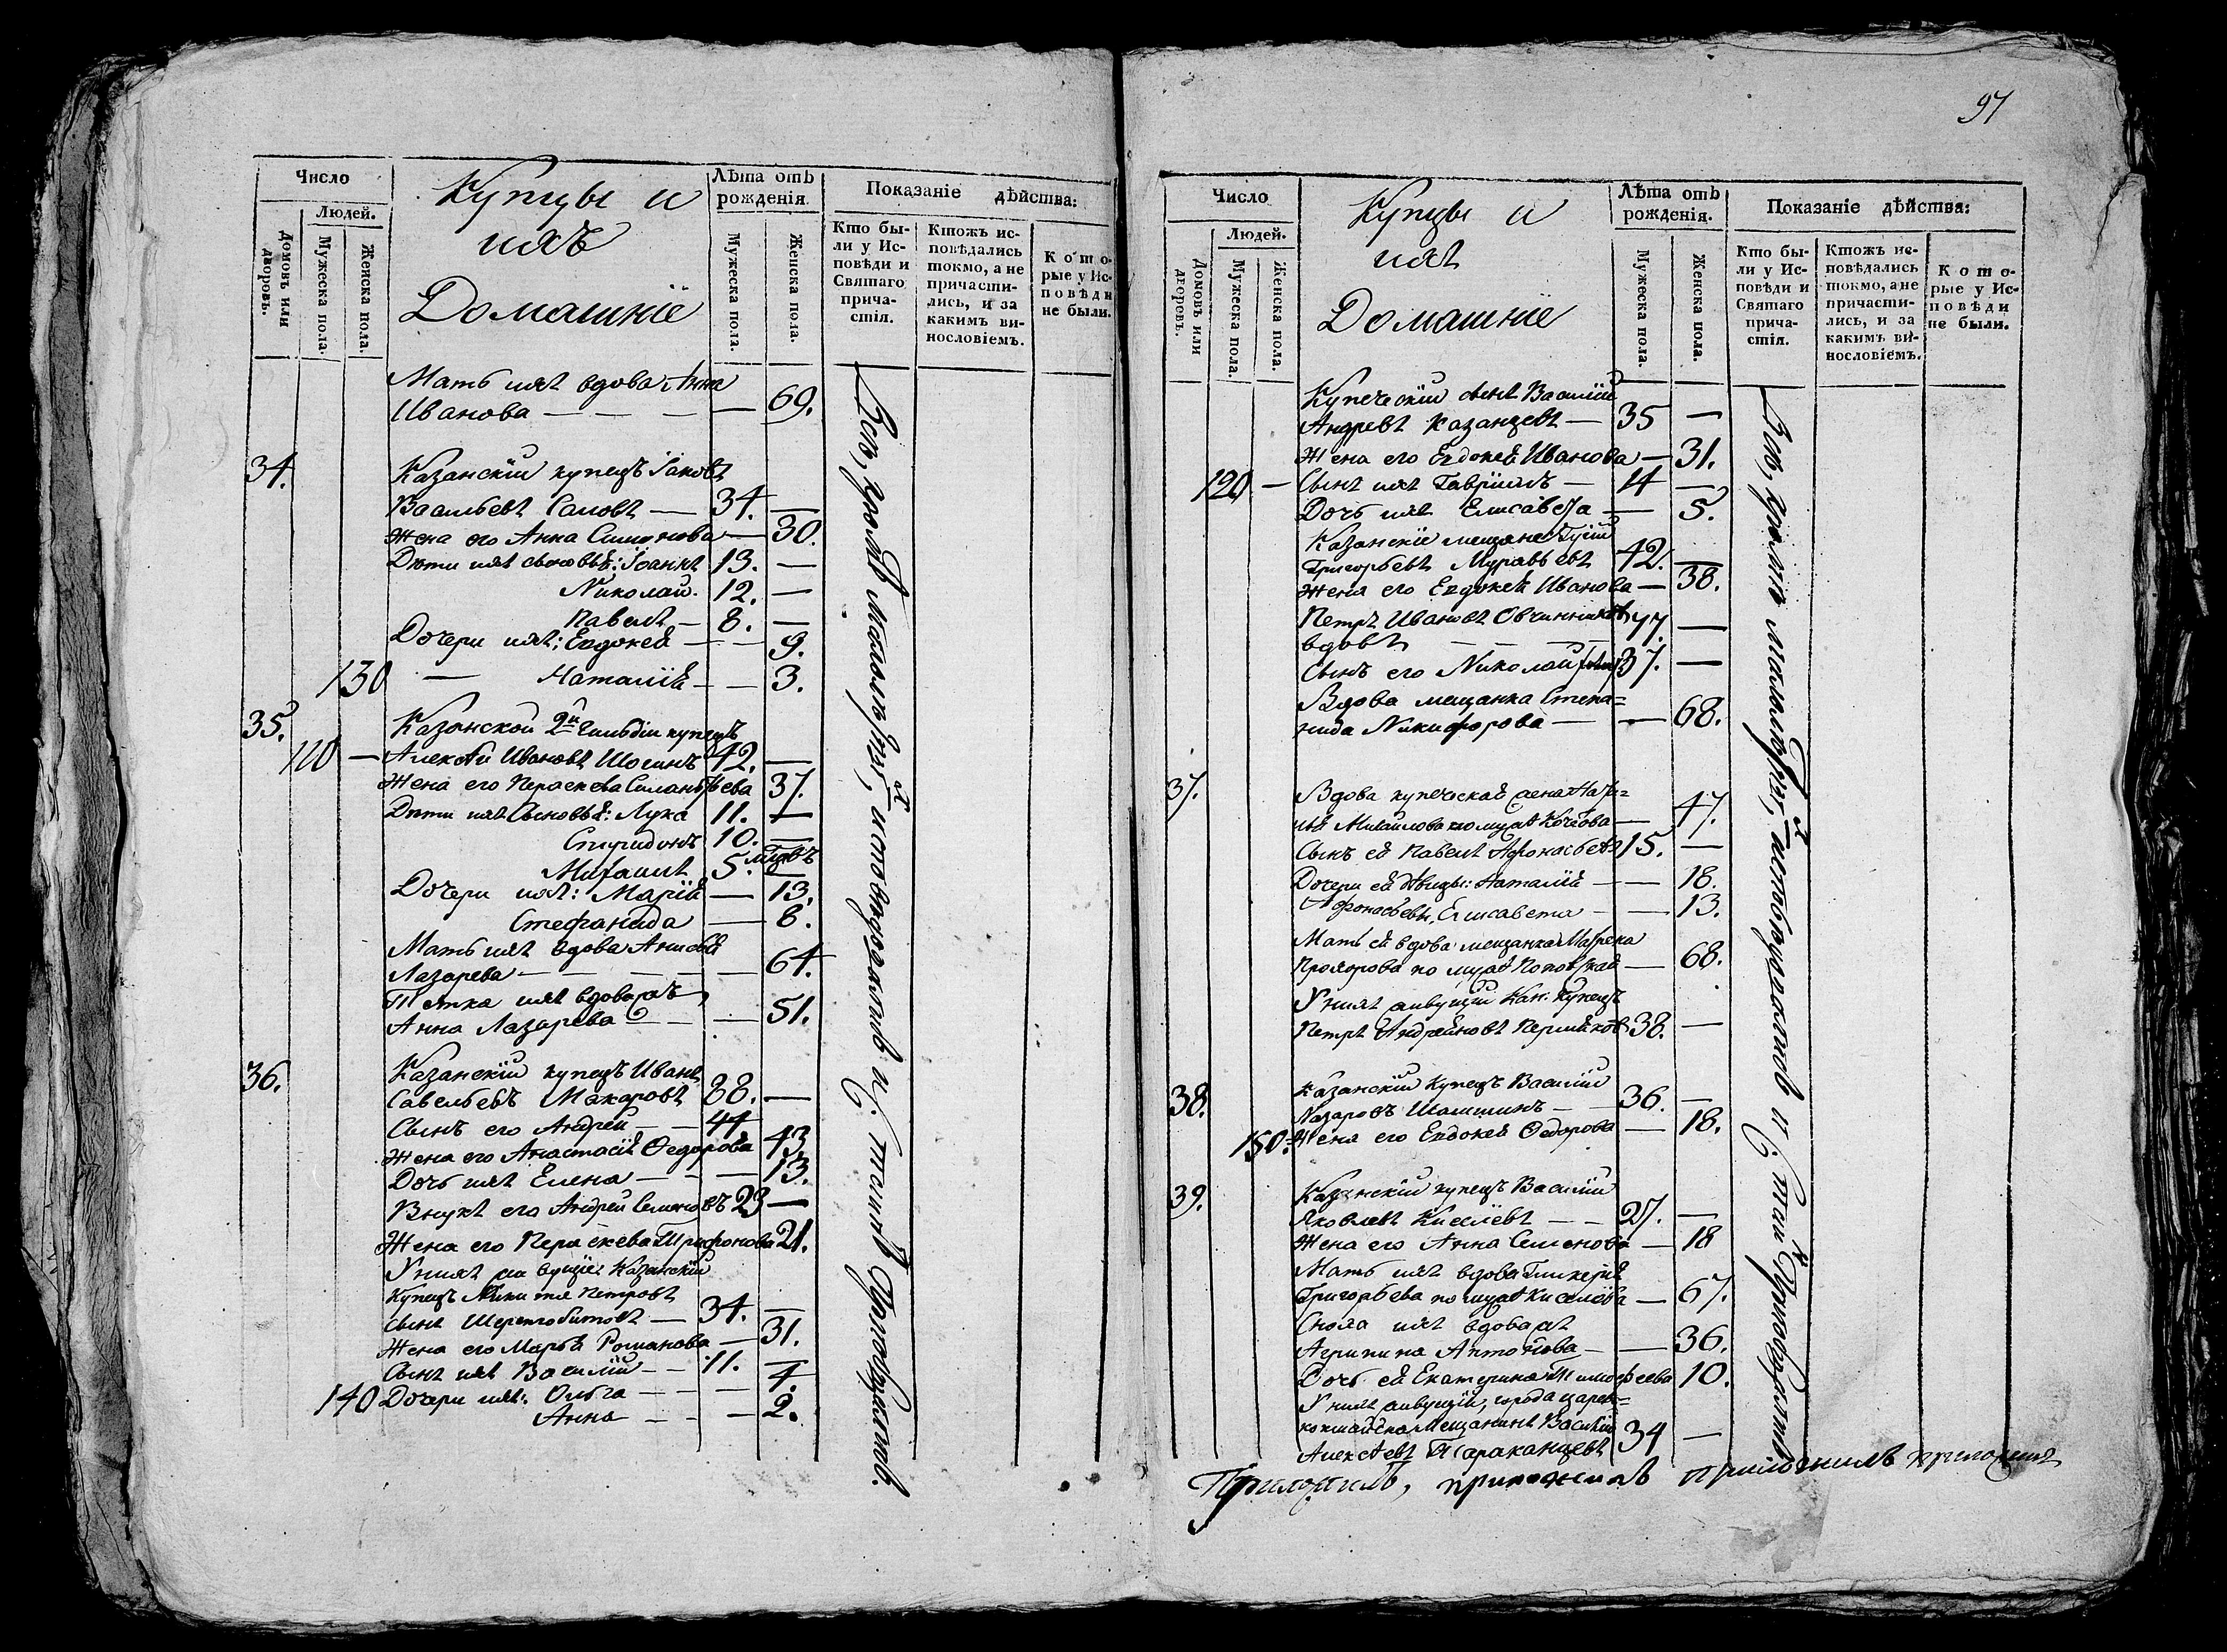 Число
Людей.
Домовъ или дворовъ.
Мужеска пола.
Женска пола.
Купцы и
ихъ
Домашніе
Лѣта отъ
рожденія.
Мужеска пола.
Женска пола.
Показаніе дѣйства:
Кто бы-
ли у Ис-
повѣди и
Святаго
прича-
стія.
Ктожъ ис-
повѣдались
токмо, а не
причасти-
лись, и за
какимъ ви-
нословіемъ.
Кото-
рые у Ис-
повѣди
не были.
Мать ихъ вдова Анна
Иванова — — — — 69.
34. Казанскій купецъ Іаковъ
Васильевъ — 34. —
Жена его Анна Симонова — 30.
Дѣти ихъ сыновья: Іоаннъ 13. —
Николай. 12. —
Павелъ — 8. —
Дочери ихъ: Евдокея — — 9.
130 — Наталія — — 3.
35. Казанской 2й гильдіи купецъ
110 — Алексѣй Ивановъ 42. —
Жена его Пераскева 37.
Дѣти ихъ Сыновья: Лука 11. —
Спиридонъ 10. —
Михаилъ 5. —
Дочери ихъ: Марія — 13.
Стефанида — 8.
Мать ихъ вдова Анисья
Лазарева — — — — 64.
Тетка ихъ вдова
Анна Лазарева — — — 51.
36. Казанскій купецъ Иванъ
Савельевъ Макаровъ 88. —
Сынъ его Андрей — — 44
Жена его Анастасія Ѳедорова 43.
Дочь ихъ Елена — — — 13.
Внукъ его Андрей Семеновъ 23 —
Жена его Пераскева Трифонова 21.
У нихъ живущіе Казанскій
Купецъ Никита Петровъ
сынъ — 34. —
Жена его Марья Романова — 31.
Сынъ ихъ Василій — — 11. —
140 Дочери ихъ: Ольга — — — 4.
Анна — — — 2.
Всѣ, кромѣ малолѣтныхъ, исповѣдались и С. таинъ пріобщились.
97
Число
Людей.
Домовъ или дворовъ.
Мужеска пола.
Женска пола.
Купцы и
ихъ
Домашніе
Лѣта отъ
рожденія.
Мужеска пола.
Женска пола.
Показаніе дѣйства:
Кто бы-
ли у Ис-
повѣди и
Святаго
прича-
стія.
Ктожъ ис-
повѣдались
токмо, а не
причасти-
лись, и за
какимъ ви-
нословіемъ.
Кото-
рые у Ис-
повѣди
не были.
Купеческій сынъ Василій
Андревъ Казанцевъ — 35 —
Жена его Евдокея Иванова — 31.
120 — Сынъ ихъ Гавріилъ — 14 —
Дочь ихъ Елисавета — 5.
Казанскіе мещане
Григорьевъ Муравьевъ 42. —
Жена его Евдокея Иванова — 38.
Петръ Ивановъ Овчинниковъ 77. —
вдовъ — — —
Сынъ его Николай 37. —
Вдова мещанка Степа=
нида Никифорова — — 68.
37. Вдова купеческая жена
Михайлова по мужѣ — 47.
Сынъ ея Павелъ Афонасьевъ 15. —
Дочери ея дѣвицы: Наталія — — 18.
Афонасьевы, Елисавета — — 13.
Мать ея вдова мещанка Матрена
Прохорова по мужѣ — 68.
У нихъ живущій Каз: купецъ
Петръ 38. —
38. Казанскій купецъ Василій
Лазаровъ — — 36. —
150 = Жена его Евдокея Ѳедорова — 18.
39. Казанскій купецъ Василій
Яковлевъ Киселевъ — — 27. —
Жена его Анна Семенова — 18
Мать ихъ вдова Гликерія
Григорьева по мужѣ Киселева — 67.
Сноха ихъ вдова
Агрипина Антонова — — 36.
Дочь ея Екатерина Тимофеева 10.
У нихъ живущій, города царево=
кокшайска Мещанинъ Василій
Алексѣевъ Тараканцевъ 34 —
Всѣ, кромѣ малолѣтныхъ, исповѣдались и С. таинъ пріобщились
Приложилъ, приложилъ приложилъ приложилъ